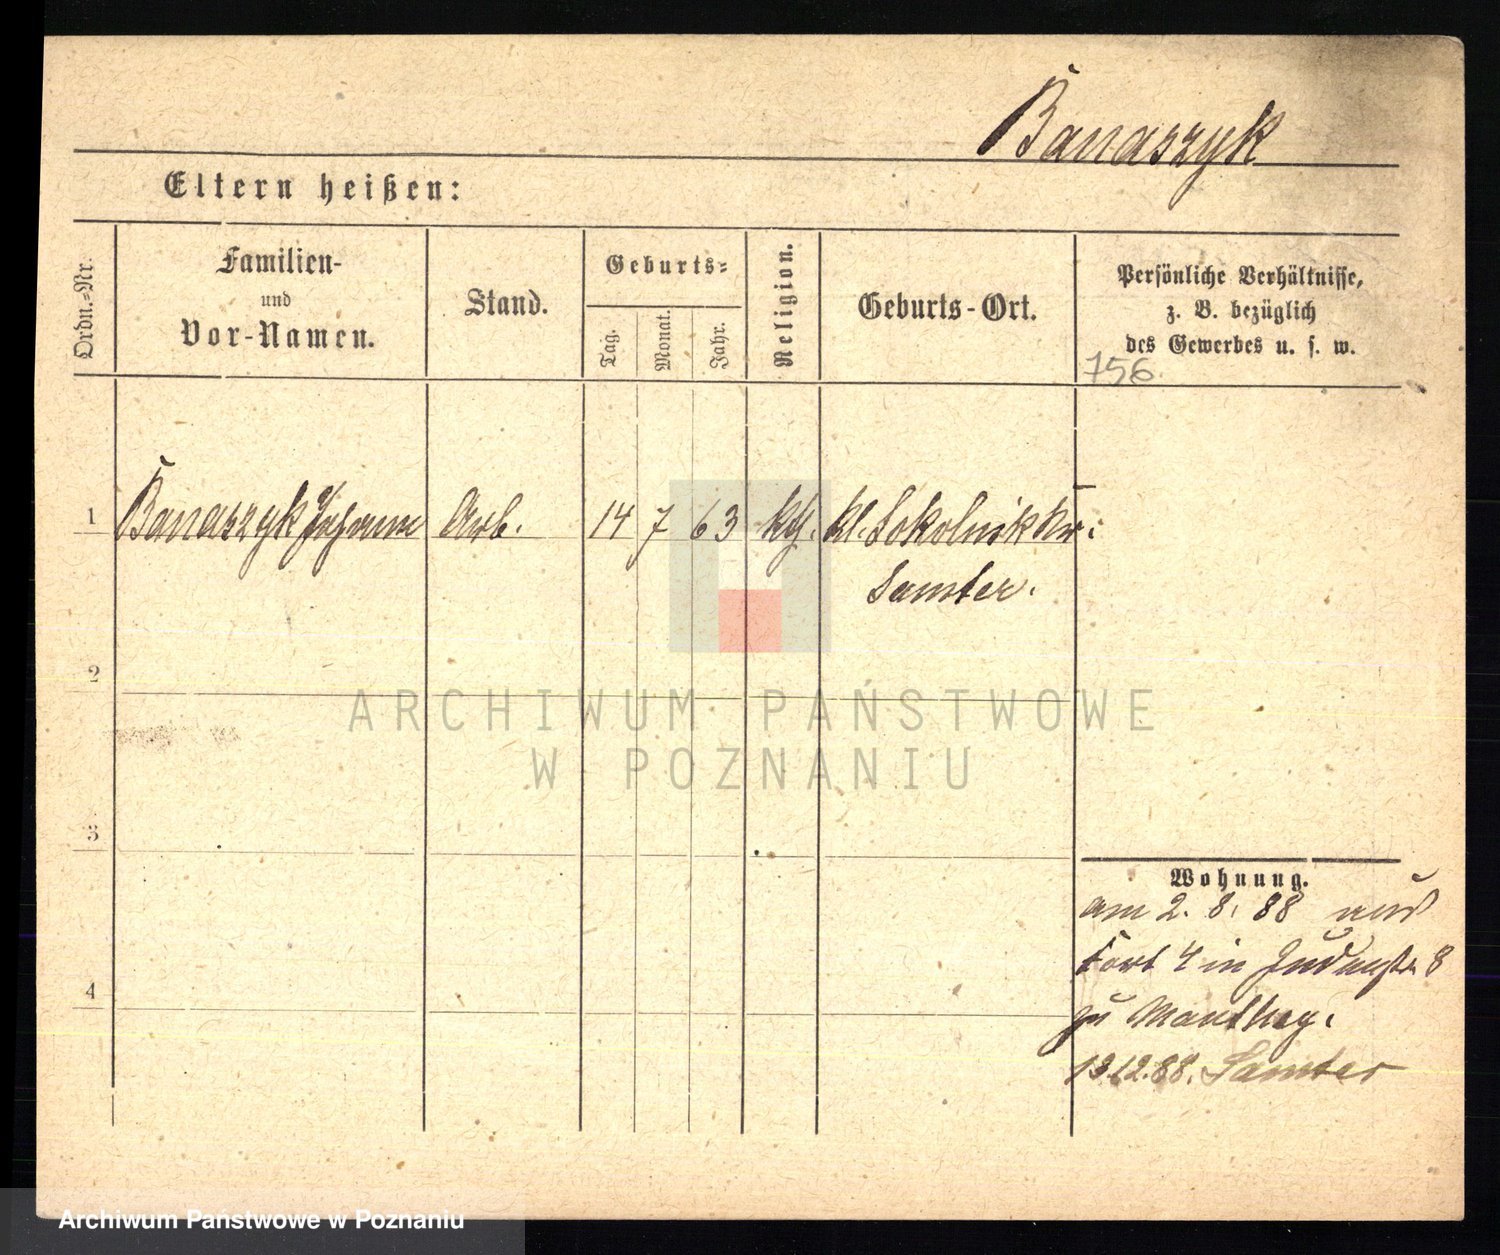 Banaszyk
Eltern heißen:
Ordn.-Nr.
Familien-
und
Vor-Namen.
Stand.
Geburts-
Tag.
Monat.
Jahr.
Religion.
Geburts-Ort.
Persönliche Verhältnisse,
z. B. bezüglich
des Gewerbes u. s. w.
756
1 Banaszyk Johann Arb. 14 7 63 kth. Kl. Sokolnik Kr:
Samter.
2
3
4
Wohnung.
am 2. 8. 88 aus
Fort 4 in Judenstr. 8
zu Manthey.
13.12.88. Samter
ARCHIWUM PAŃSTWOWE
W POZNANIU
Archiwum Państwowe w Poznaniu